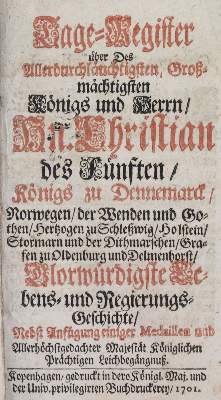 Tage-Register
über Des
Allerdurchläuchtigsten, Groß-
mächtigsten
Königs und Herrn/
Hn. Christian
des Fünften/
Königs zu Dennemarck/
Norwegen/der Wenden und Go-
then/Hertzogen zu Schleßwig/Holstein/
Stormarn und der Dithmarschen/Gra-
fen zu Oldenburg und Delmenhorst/
Glorwürdigste Le-
bens- und Regierungs-
Geschichte/
Nebst Anfügung einiger Medaillen und
Allerhöchstgedachter Majestät Königlichen
Prächtigen Leichbegängnuß.
Kopenhagen/gedruckt in dero Königl. Maj. und
der Univ. privilegirten Buchdruckerey/1701.